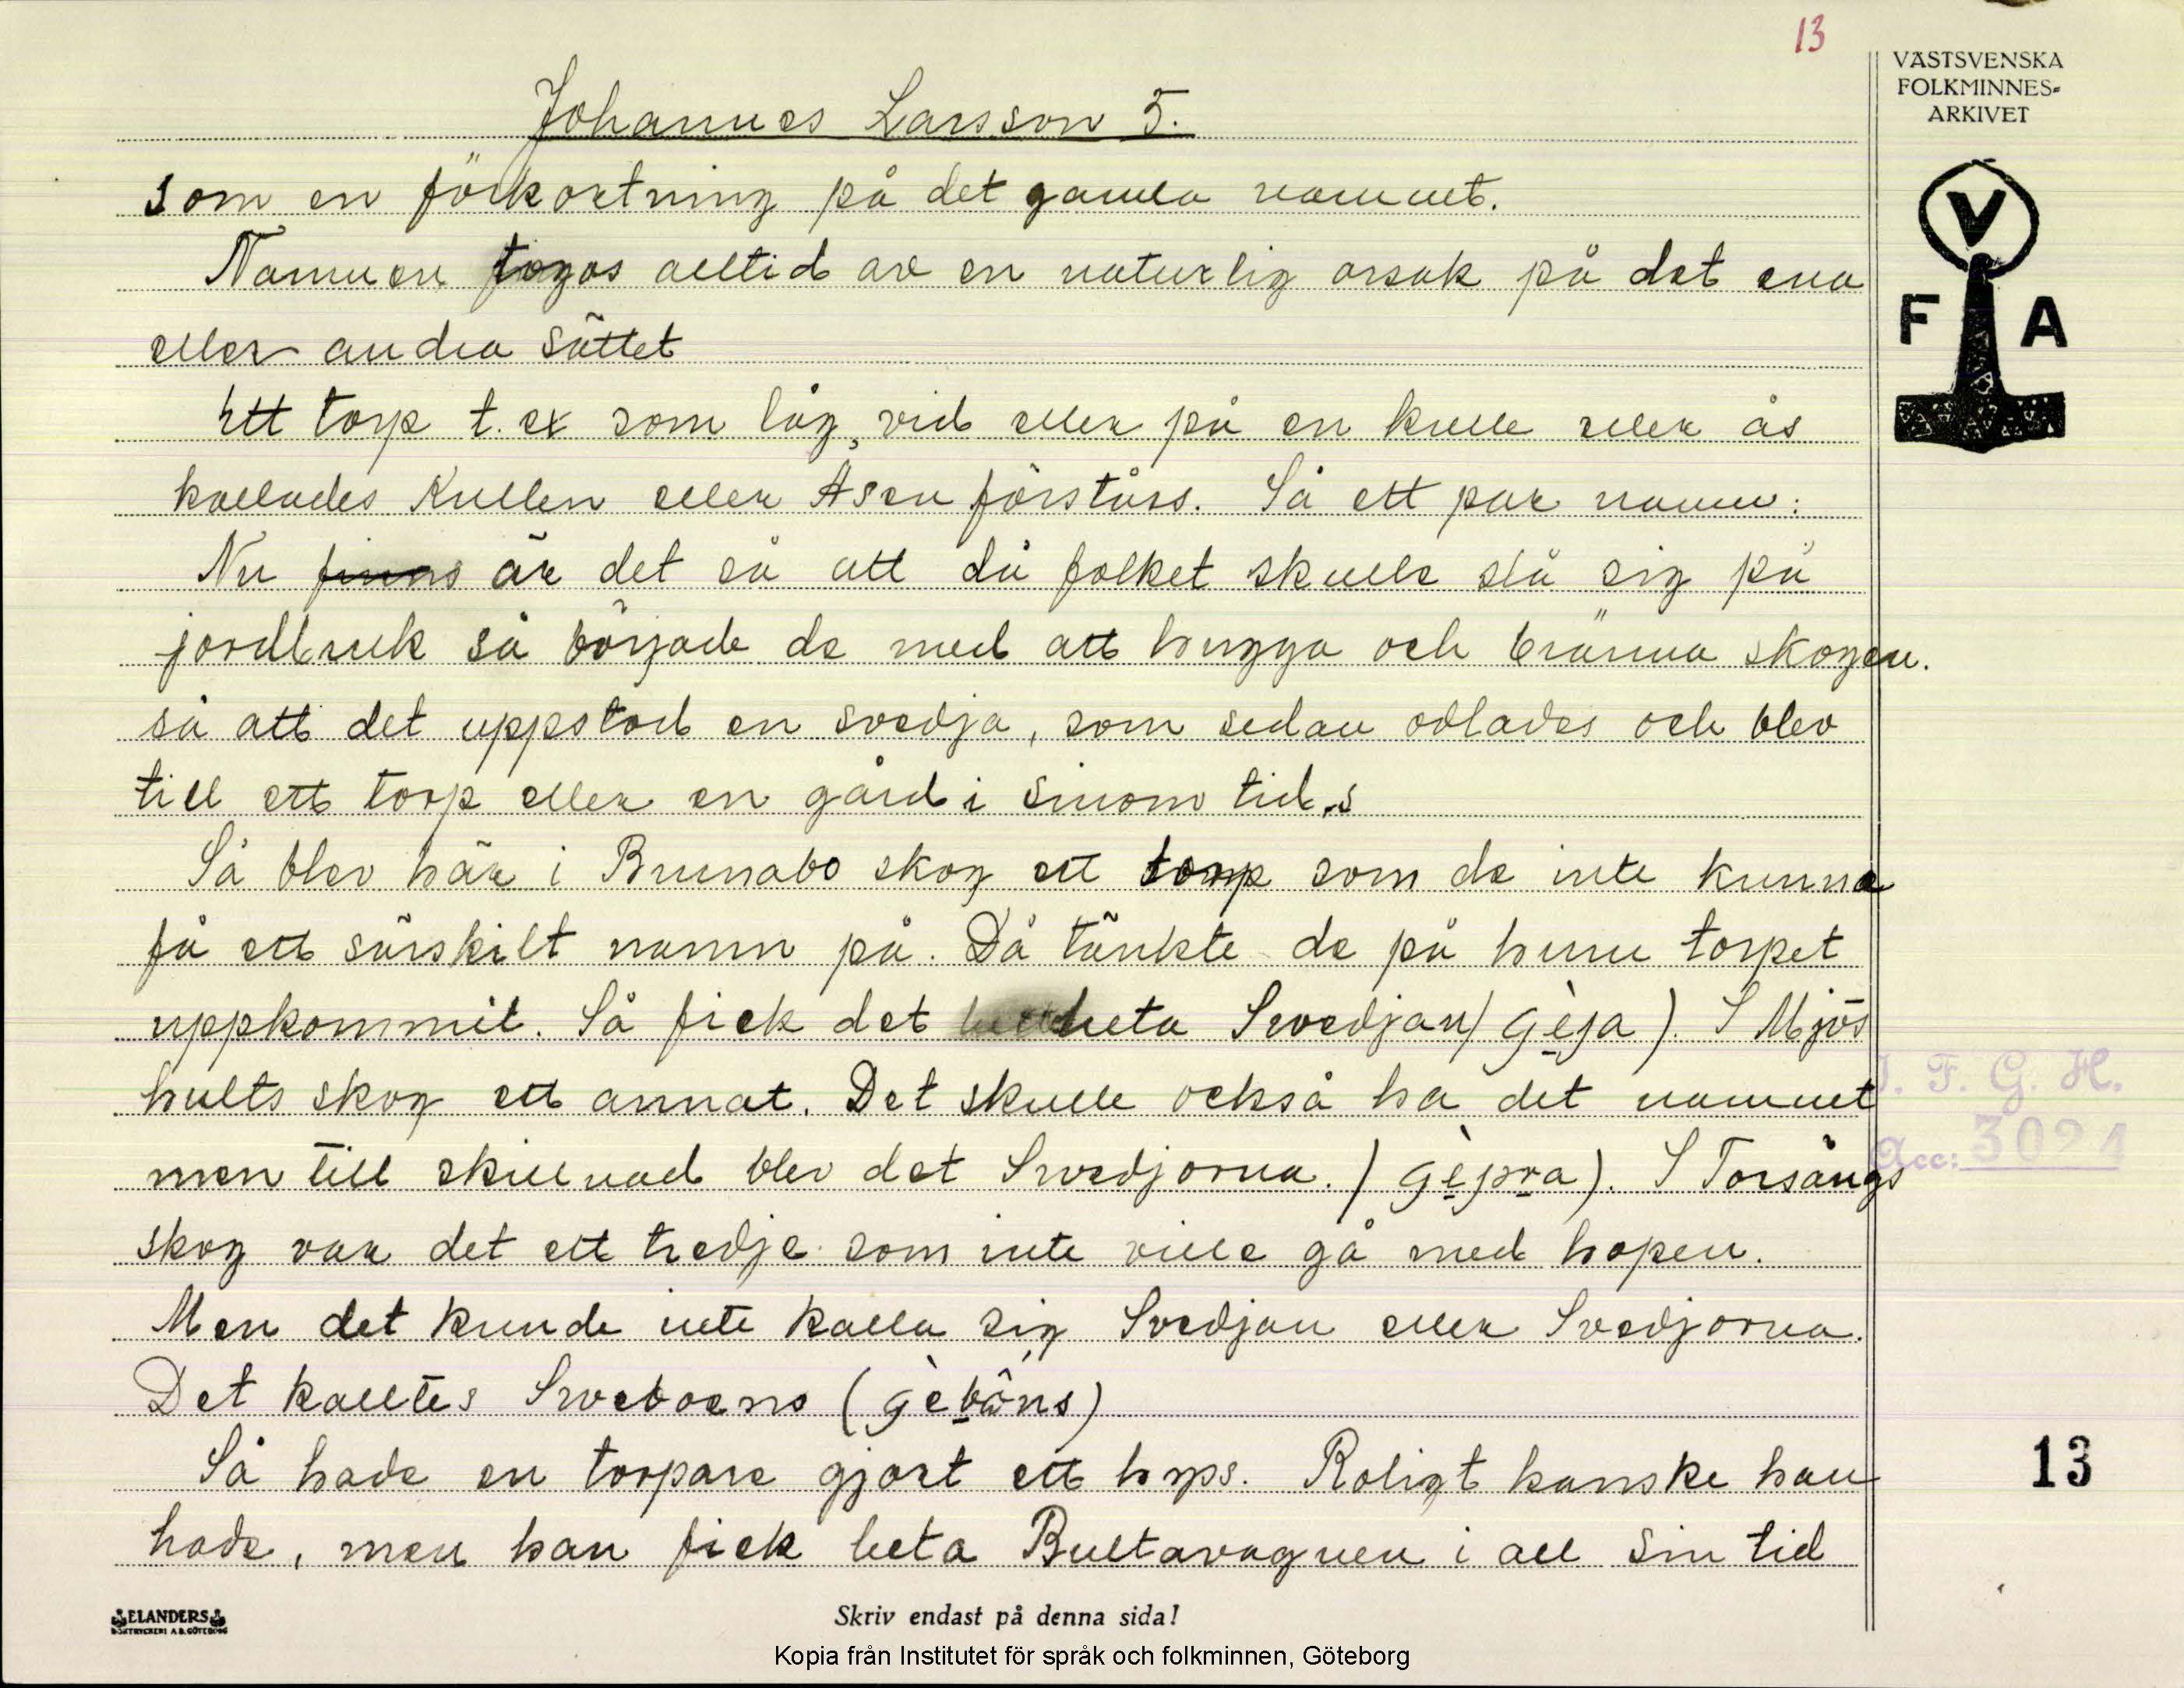 13
VÄSTSVENSKA
FOLKMINNES-
ARKIVET
V
F A
Johannes Larsson 5.
som en förkortning på det gamla namnet.
Namnen togos alltid av en naturlig orsak på det ena
eller andra sättet
Ett torp t. ex som låg, vid eller på en kulle eller ås
kallades Kullen eller Åsen förstårs. Så ett par namn:
Nu finns är det så att då folket skulle slå sig på
jordbruk så började de med att hugga och bränna skogen.
så att det uppstod en svedja, som sedan odlades och blev
till ett torp eller en gård i sinom tid.s
Så blev här i Brunabo skog ett torp som de inte kunna
få ett särskilt namn på. Då tänkte de på huru torpet
uppkommit. Så fick det heta Svedjan/ Gèja). I Mjös
hults skog ett annat. Det skulle också ha det namnet
men till skillnad blev det Svedjorna. / Gèjora). I Torsångs
skog var det ett tredje som inte ville gå med hopen.
Men det kunde inte kalla sig Svedjan eller Svedjorna.
Det kalltes Sveboens (Gèbôns)
Så hade en torpare gjort ett hyps. Roligt kanske han
hade, men han fick heta Bultavagnen i all sin tid
I. F. G. H.
Acc: 3021
13
ELANDERS
BOKTRYCKERI A.B. GÖTEBORG
Skriv endast på denna sida!
Kopia från Institutet för språk och folkminnen, Göteborg